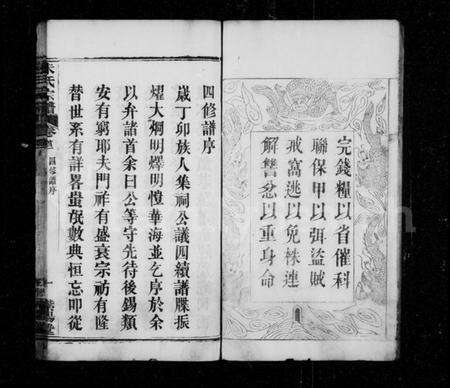 完錢糧以省催科
聯保甲以弭盜賊
戒窩逃以免株連
解讐忿以重身命
四修譜序
歲丁卯族人集祠公議四續譜牒振
燿大烱明懌明愷華海並乞序於余
以弁諸首余曰公等守先待後錫類
安有窮耶夫門祚有盛衰宗祊有隆
替世系有詳畧蚩氓數典恒忘即從
氏宗譜
卷首
四修譜序